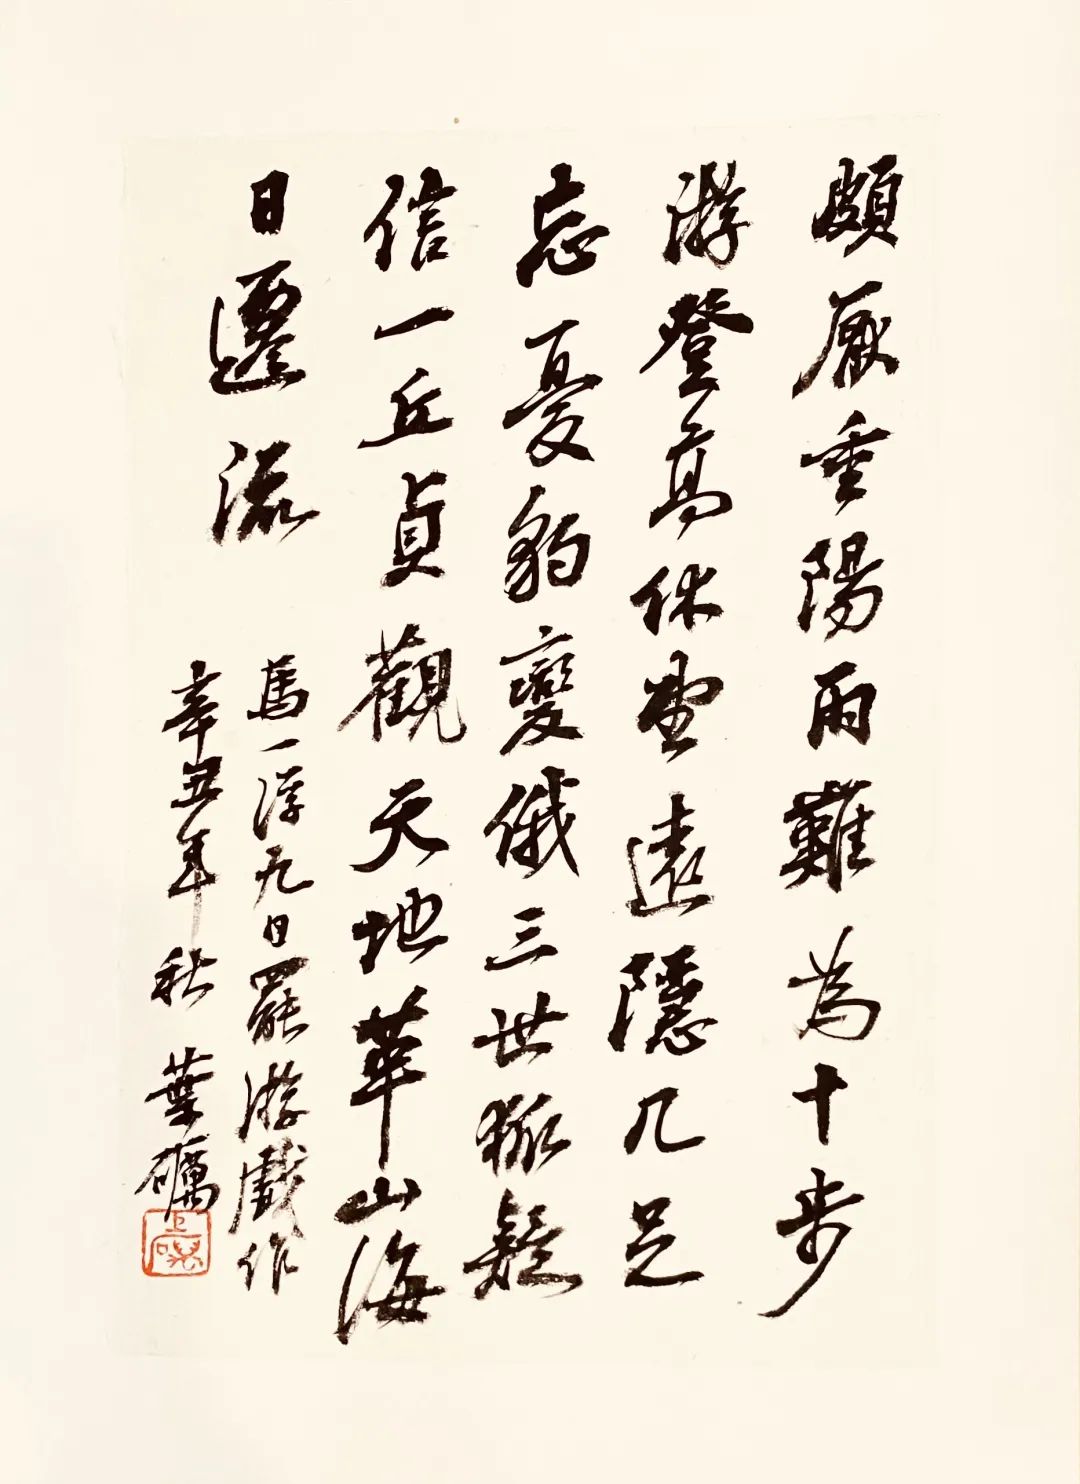 頗厭重陽雨難為十步
游登高休望遠隱几足
忘憂豹變俄三世狐疑
信一丘貞觀天地革山海
日遷流
馬一浮九日罷游戲作
辛丑年秋 葉礪